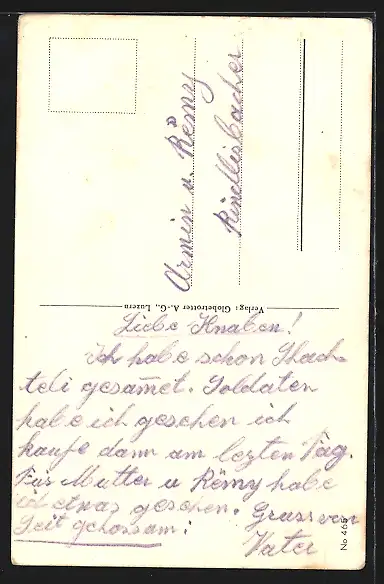 Armin u. Rémy
Rindlisbacher
Verlag: Globetrotter A.-G., Luzern
Liebe Knaben!
Ich habe schon Schach-
teli gesamet. Soldaten
habe ich gesehen ich
kaufe dann am lezten Tag.
Für Mutter u Rémy habe
ich etwas gesehen. Gruss von
Seit gehorsam! Vater
No 465